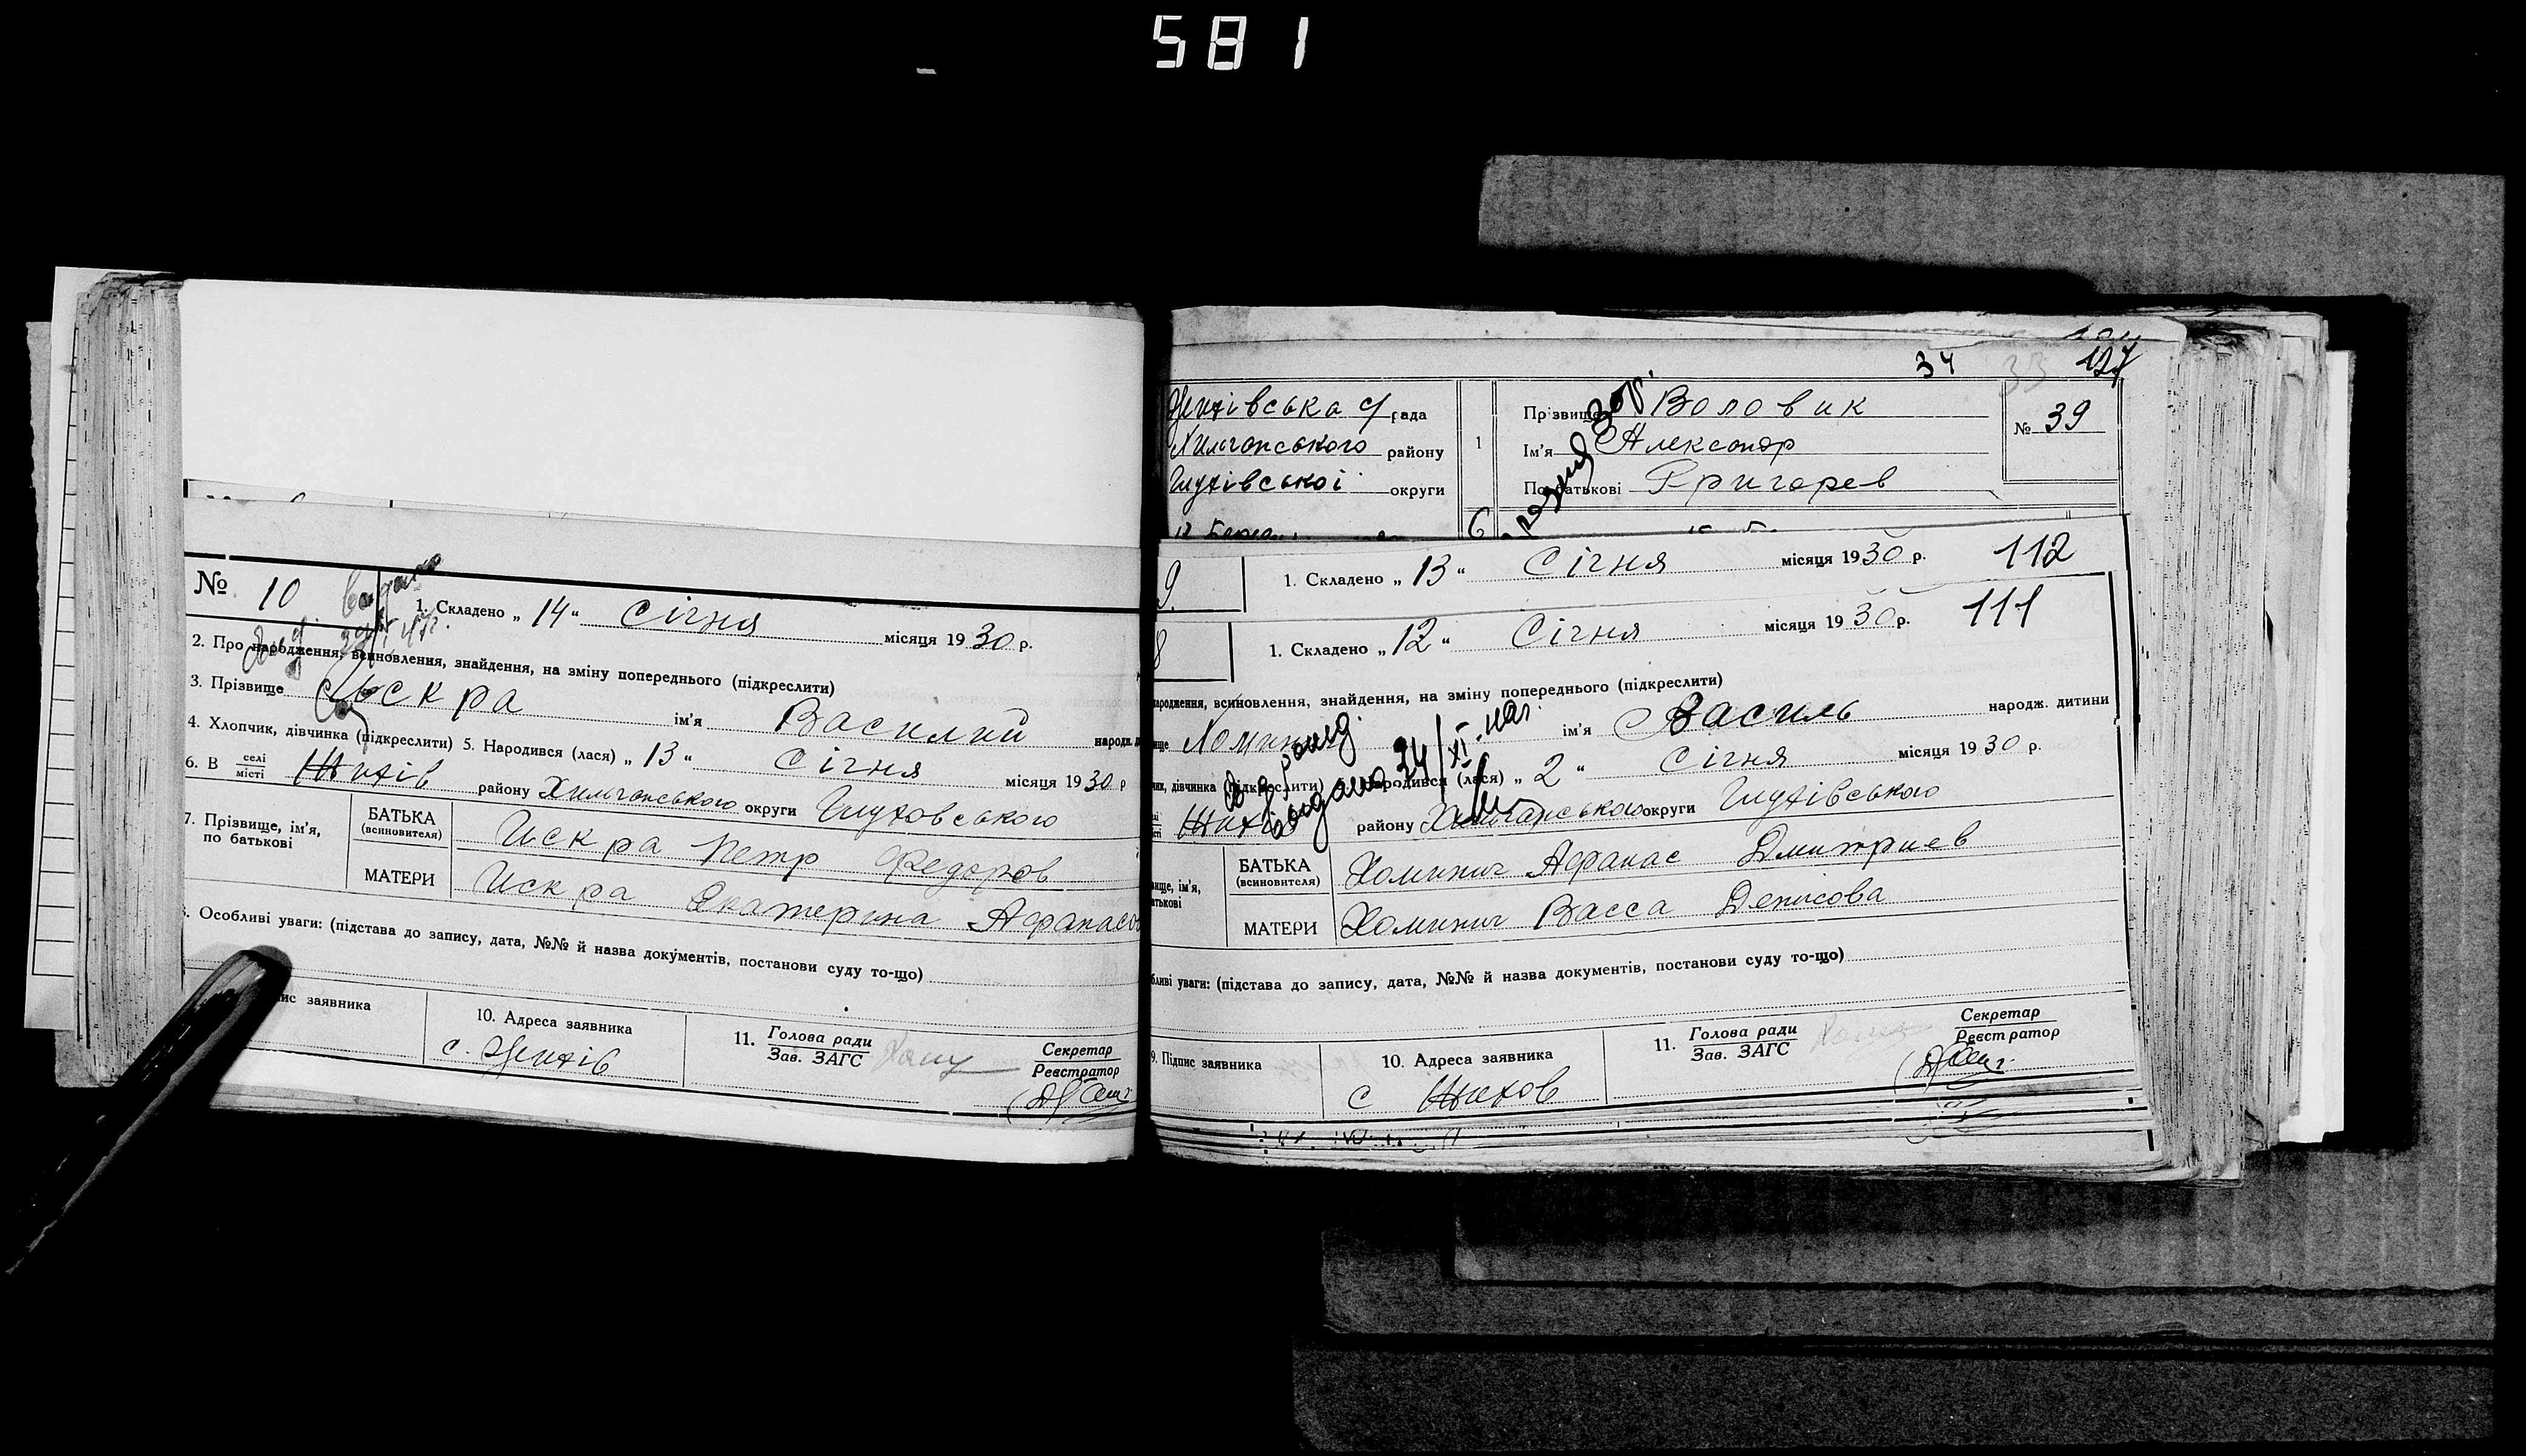 581
№ 10
1. Складено „ 14 “ Січня місяця 1930 р.
2. Про народження, всиновлення, знайдення, на зміну попереднього (підкреслити)
3. Прізвище Искра ім'я Василий народж.
4. Хлопчик, дівчинка (підкреслити) 5. Народився (лася) „ 13 “ Січня місяця 1930 р
6. В селі місті Жихів району Хильчанського округи Глуховського
7. Прізвище, ім'я, по батькові
БАТЬКА (всиновителя) Искра Петр Федоров
МАТЕРИ Искра Екатерина
Особливі уваги: (підстава до запису, дата, №№ й назва документів, постанови суду то-що)
заявника
10. Адреса заявника
с. Жихів
11. Голова ради
Зав. ЗАГС
Секретар
Реєстратор
34 33 127
Жихівська с/рада
Хильчанського району
Глухівської округи
1
Прізвище Воловик
Ім'я Александр
По батькові Григорев
№ 39
9.
1. Складено „ 13 “ Січня місяця 1930 р. 112
8
1. Складено „ 12 “ Січня місяця 1930 р. 111
народження, всиновлення, знайдення, на зміну попереднього (підкреслити)
ім'я Василь народж. дитини
дівчинка (підкреслити) Народився (лася) „ 2 “ Січня місяця 1930 р.
видано 24/XI
Жихів району Хильчанського округи Глухівського
БАТЬКА (всиновителя) Хоминич Афанас Дмитриев
МАТЕРИ Хоминич Васса Денисова
уваги: (підстава до запису, дата, №№ й назва документів, постанови суду то-що)
9. Підпис заявника
10. Адреса заявника
с Жихов
11. Голова ради
Зав. ЗАГС
Секретар
Реєстратор